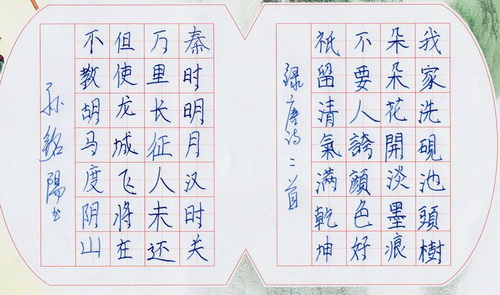 我家洗硯池頭樹
朵朵花開淡墨痕
不要人誇顔色好
祇留清氣滿乾坤
録唐诗二首
秦时明月汉时关
万里长征人未还
但使龙城飞将在
不教胡马度阴山
孙 陽书